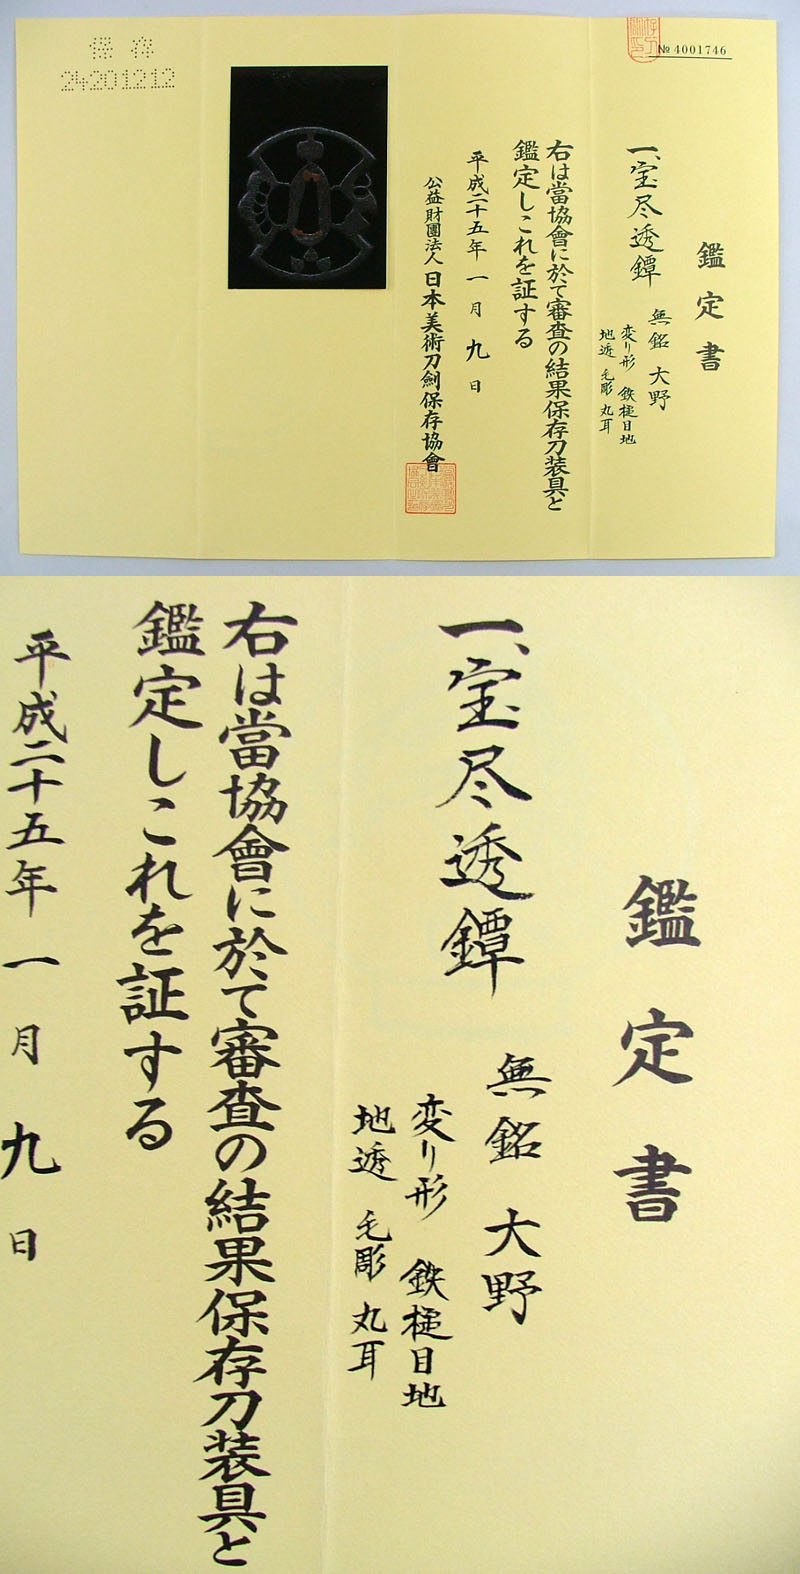 保存
24201212
№ 4001746
鑑定書
一、宝尽透鐔
無銘 大野
変り形 鉄槌目地
地透 毛彫 丸耳
右は當協會に於て審査の結果保存刀装具と
鑑定しこれを証する
平成二十五年一月九日
公益財團法人日本美術刀劍保存協會
鑑定書
一、宝尽透鐔
無銘 大野
変り形 鉄槌目地
地透 毛彫 丸耳
右は當協會に於て審査の結果保存刀装具と
鑑定しこれを証する
平成二十五年一月九日